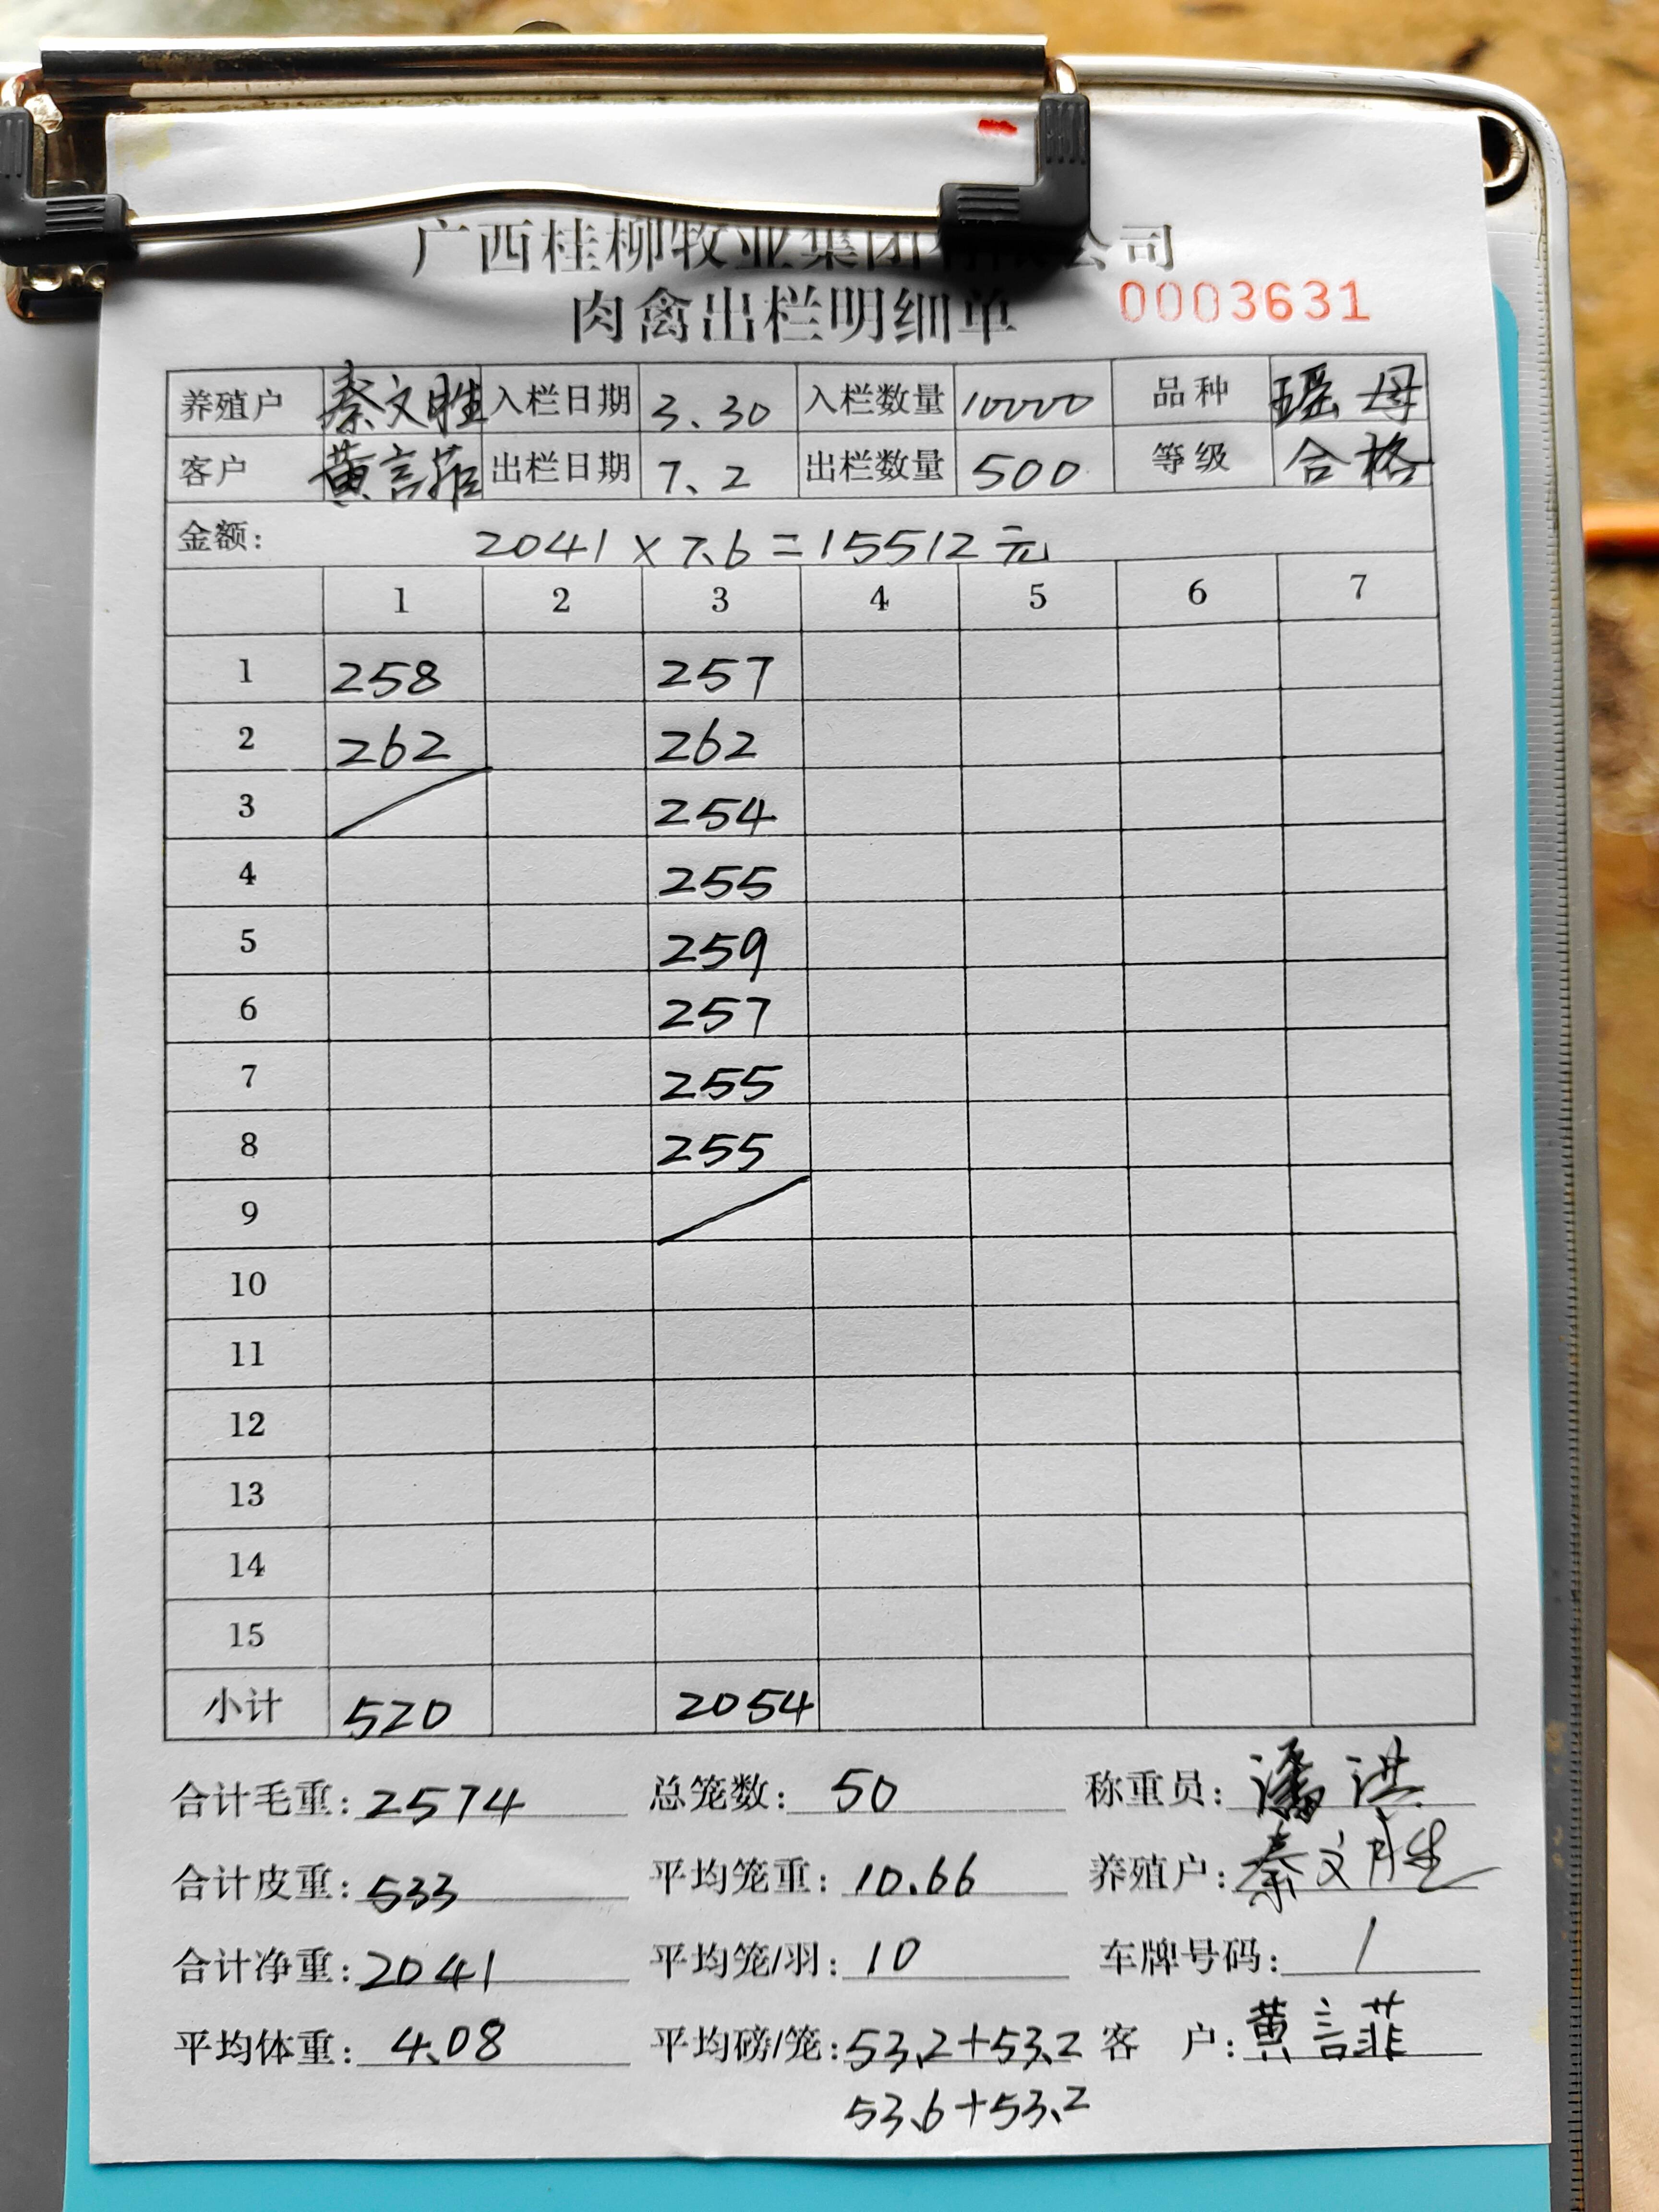 广西桂柳牧业集团有限公司
肉禽出栏明细单 0003631
养殖户 秦文胜 入栏日期 3.30 入栏数量 10000 品种 瑶母
客户 黄言菲 出栏日期 7.2 出栏数量 500 等级 合格
金额: 2041×7.6=15512元
1 2 3 4 5 6 7
1 258 257
2 262 262
3 254
4 255
5 259
6 257
7 255
8 255
9
10
11
12
13
14
15
小计 520 2054
合计毛重: 2574 总笼数: 50 称重员: 潘洪
合计皮重: 533 平均笼重: 10.66 养殖户: 秦文胜
合计净重: 2041 平均笼/羽: 10 车牌号码: /
平均体重: 4.08 平均磅/笼: 53.2+53.2 客 户: 黄言菲
53.6+53.2